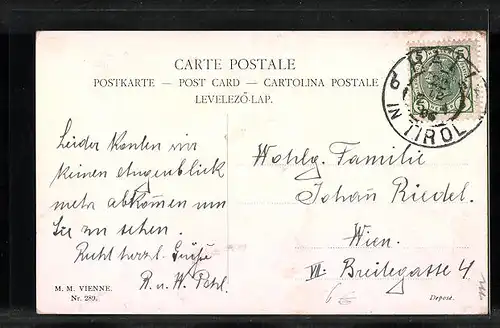 CARTE POSTALE
POSTKARTE — POST CARD — CARTOLINA POSTALE
LEVELEZŐ-LAP.
IN TIROL
Leider konten wir
keinen Augenblick
mehr abkomen um
Sie zu sehen.
Recht herzl. Grüße
R. u. H.
Wohlg. Familie
Johan Riedel.
Wien.
VII. Breitegasse 4
M. M. VIENNE.
Nr. 289.
Deposé.